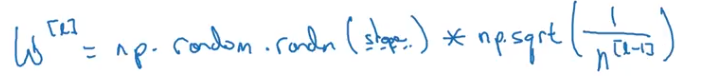 W^[l] = np.random.randn(shape) * np.sqrt(1/n^[l-1])